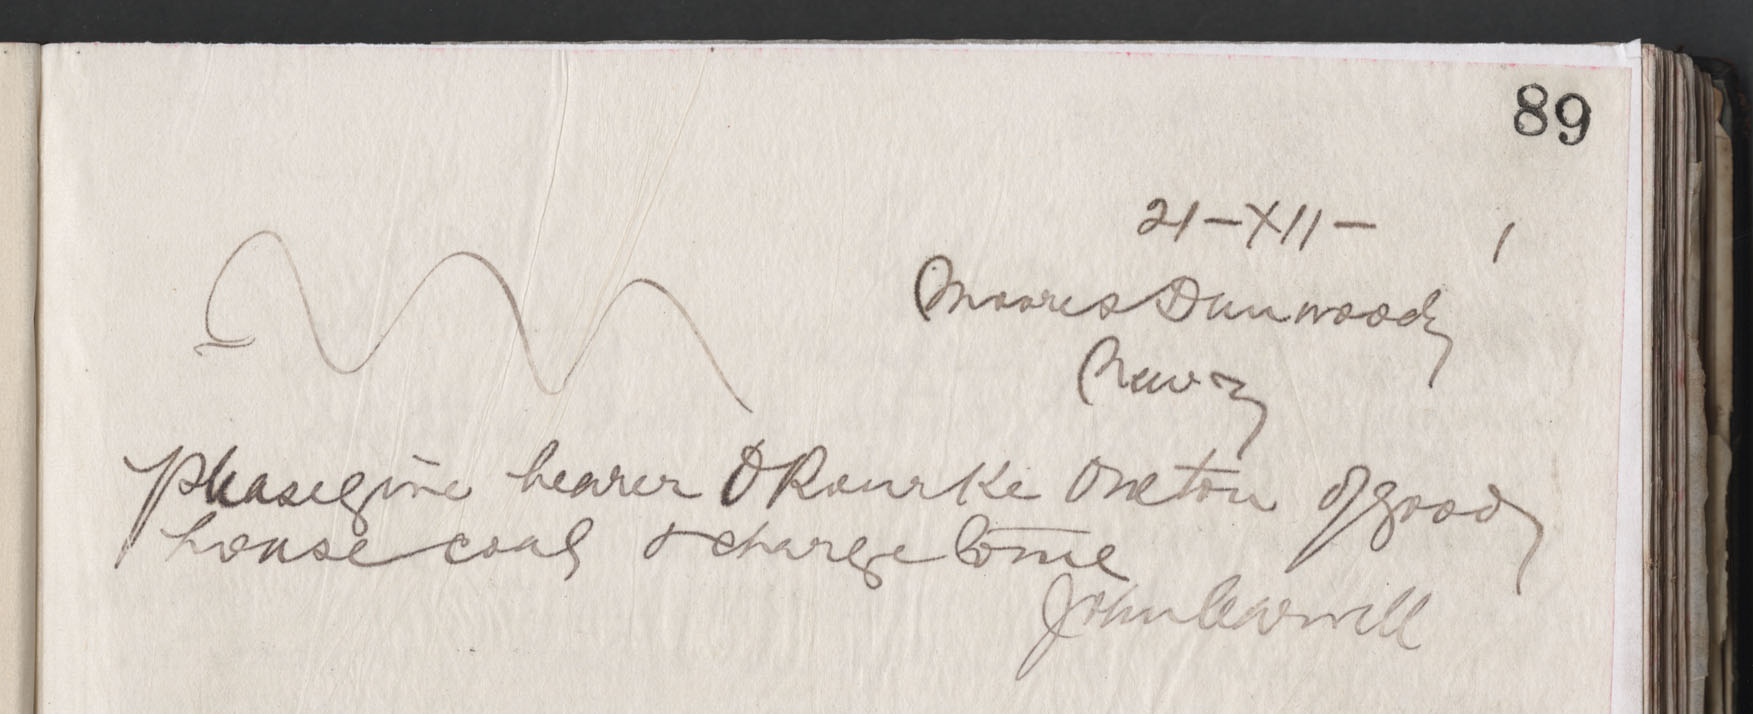 89
21-XII- 1
Moores Dunwoody
Newry
please give bearer O Rourke one ton of good
house coal & charge to me
John